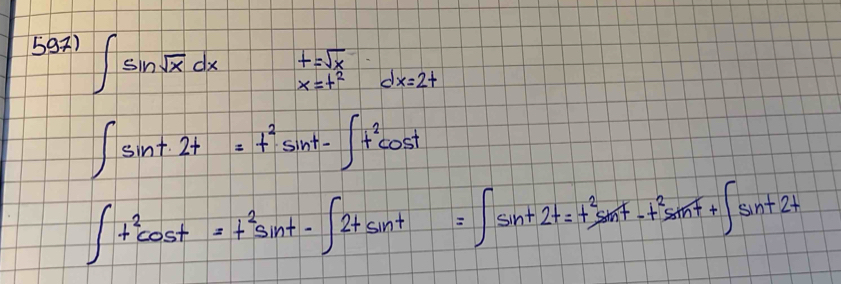 597) ∫ sin√x dx t=√x
x=t² dx=2t
∫ sint. 2t = t² sint - ∫ t²cost
∫ t²cost = t²sint - ∫ 2t sint = ∫ sint 2t = t²sint - t²sint + ∫ sint 2t